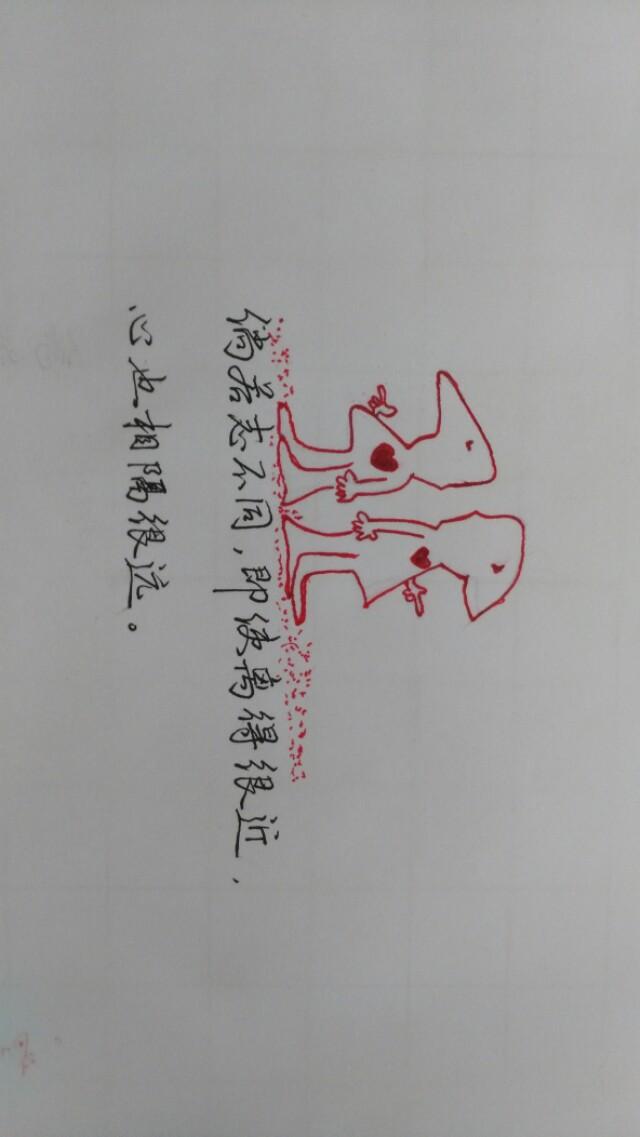 倘若志不同，即使离得很近，
心也相隔很远。